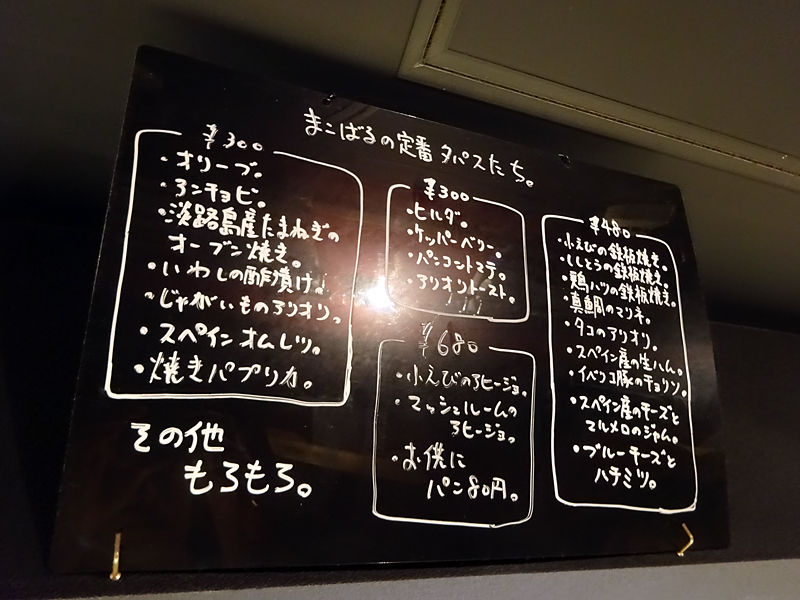 まこばるの定番タパスたち。
¥300
・オリーブ。
・アンチョビ。
・淡路島産たまねぎの
オーブン焼き。
・いわしの酢漬け。
・じゃがいものアリオリ。
・スペインオムレツ。
・焼きパプリカ。
その他
もろもろ。
¥300
・ヒルダ。
・ケッパーベリー。
・パンコントマテ。
・アリオリトースト。
¥680
・小えびのアヒージョ。
・マッシュルームの
アヒージョ。
・お供に
パン80円。
¥480
・小えびの鉄板焼き。
・ししとうの鉄板焼き。
・鶏ハツの鉄板焼き。
・真鯛のマリネ。
・タコのアリオリ。
・スペイン産の生ハム。
・イベリコ豚のチョリソ。
・スペイン産のチーズと
マルメロのジャム。
・ブルーチーズと
ハチミツ。